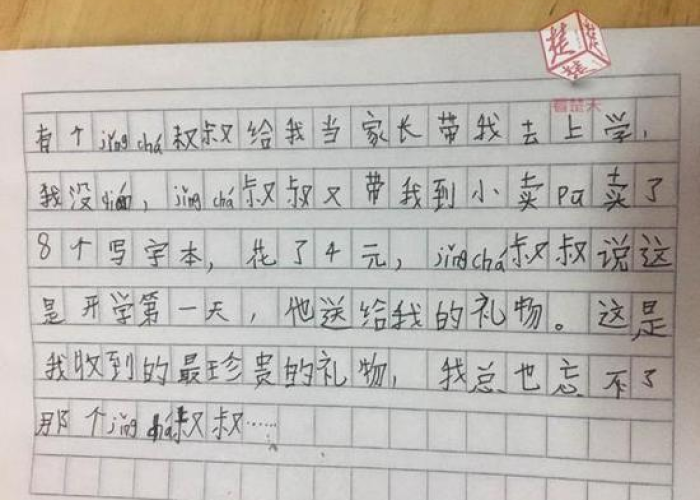 楚
看楚天
有个jǐng chá叔叔给我当家长带我去上学,
我没qián, jǐng chá叔叔又带我到小卖pù卖了
8个写字本, 花了4元, jǐng chá叔叔说这
是开学第一天, 他送给我的礼物。这是
我收到的最珍贵的礼物, 我总也忘不了
那个jǐng chá叔叔……